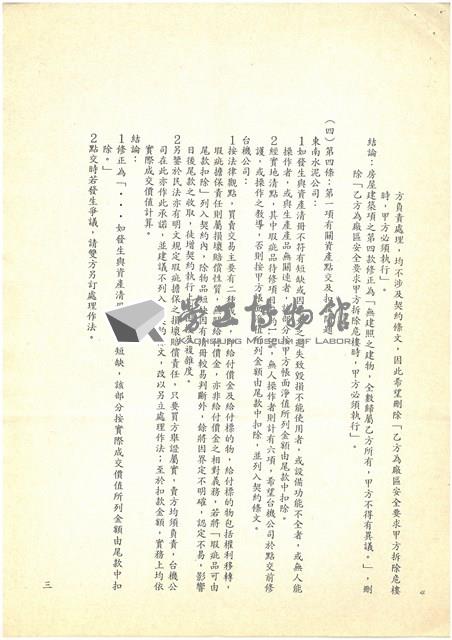 方負責處理，均不涉及契約條文，因此希望刪除「乙方為廠區安全要求甲方拆除危樓
時，甲方必須執行」。
結論：房屋建築項之第四款修正為「無建照之建物，全數歸屬乙方所有，甲方不得有異議。」，刪
除「乙方為廠區安全要求甲方拆除危樓時，甲方必須執行」。
(四)第四條：第一項有關資產點交及扣
東南水泥公司：
1如發生與資產清冊不符有短缺或因 失致毀損不能使用者，或設備功能不全者，或無人能
操作者，或與生產產品無關連者， 部分按甲方帳面淨值所列金額由尾款中扣除。
2經實地清點，其中瑕疵品待修項目 ，無人操作者則計有六項，希望台機公司於點交前修
護，或操作之教導，否則按甲方帳 列金額由尾款中扣除，並列入契約條文。
台機公司：
1按法律觀點，買賣交易主要有二種 給付價金及給付標的物，給付標的物包括權利移轉，
瑕疵擔保責任則屬損壞賠償性質， 給付價金，亦非給付價金之相對義務，若將「瑕疵品可由
尾款扣除」列入契約內，除物品短缺因有清冊較易判斷外，餘將因界定不明確，認定不易，影響
日後尾款之收取，徒增契約執行 複雜度。
2另鑒於民法亦有明文規定瑕疵擔保之損壞賠償責任，只要買方舉證屬實，賣方均須負責，台機公
司在此亦作此承諾，並建議不列入 條文，改以另立處理作法；至於扣款金額，實務上均依
實際成交價值計算。
結論：
1修正為「．．．如發生與資產清冊 短缺，該部分按實際成交價值所列金額由尾款中扣
除。」
2點交時若發生爭議，請雙方另訂處理作法。
三
勞工博物館
KAOHSIUNG MUSEUM OF LABOR